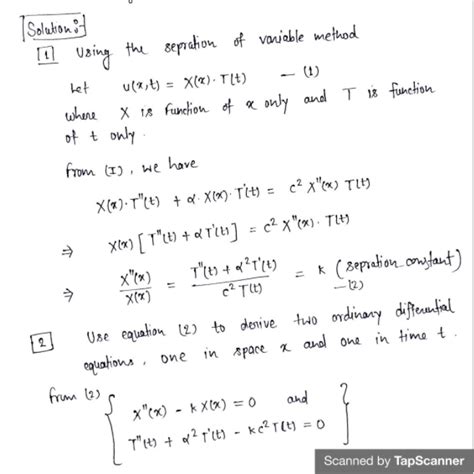 Solution :-
1 Using the sepration of variable method
Let u(x,t) = X(x) · T(t) — (1)
where X is function of x only and T is function
of t only.
from (I), we have
X(x) · T''(t) + α · X(x) · T'(t) = c² X''(x) T(t)
⇒ X(x) [T''(t) + α T'(t)] = c² X''(x) · T(t)
⇒ X''(x) / X(x) = T''(t) + α² T'(t) / c² T(t) = k (sepration constant) — (2)
2 Use equation (2) to derive two ordinary differential
equations, one in space x and one in time t.
from (2) { X''(x) - k X(x) = 0 and
T''(t) + α² T'(t) - k c² T(t) = 0 }
Scanned by TapScanner